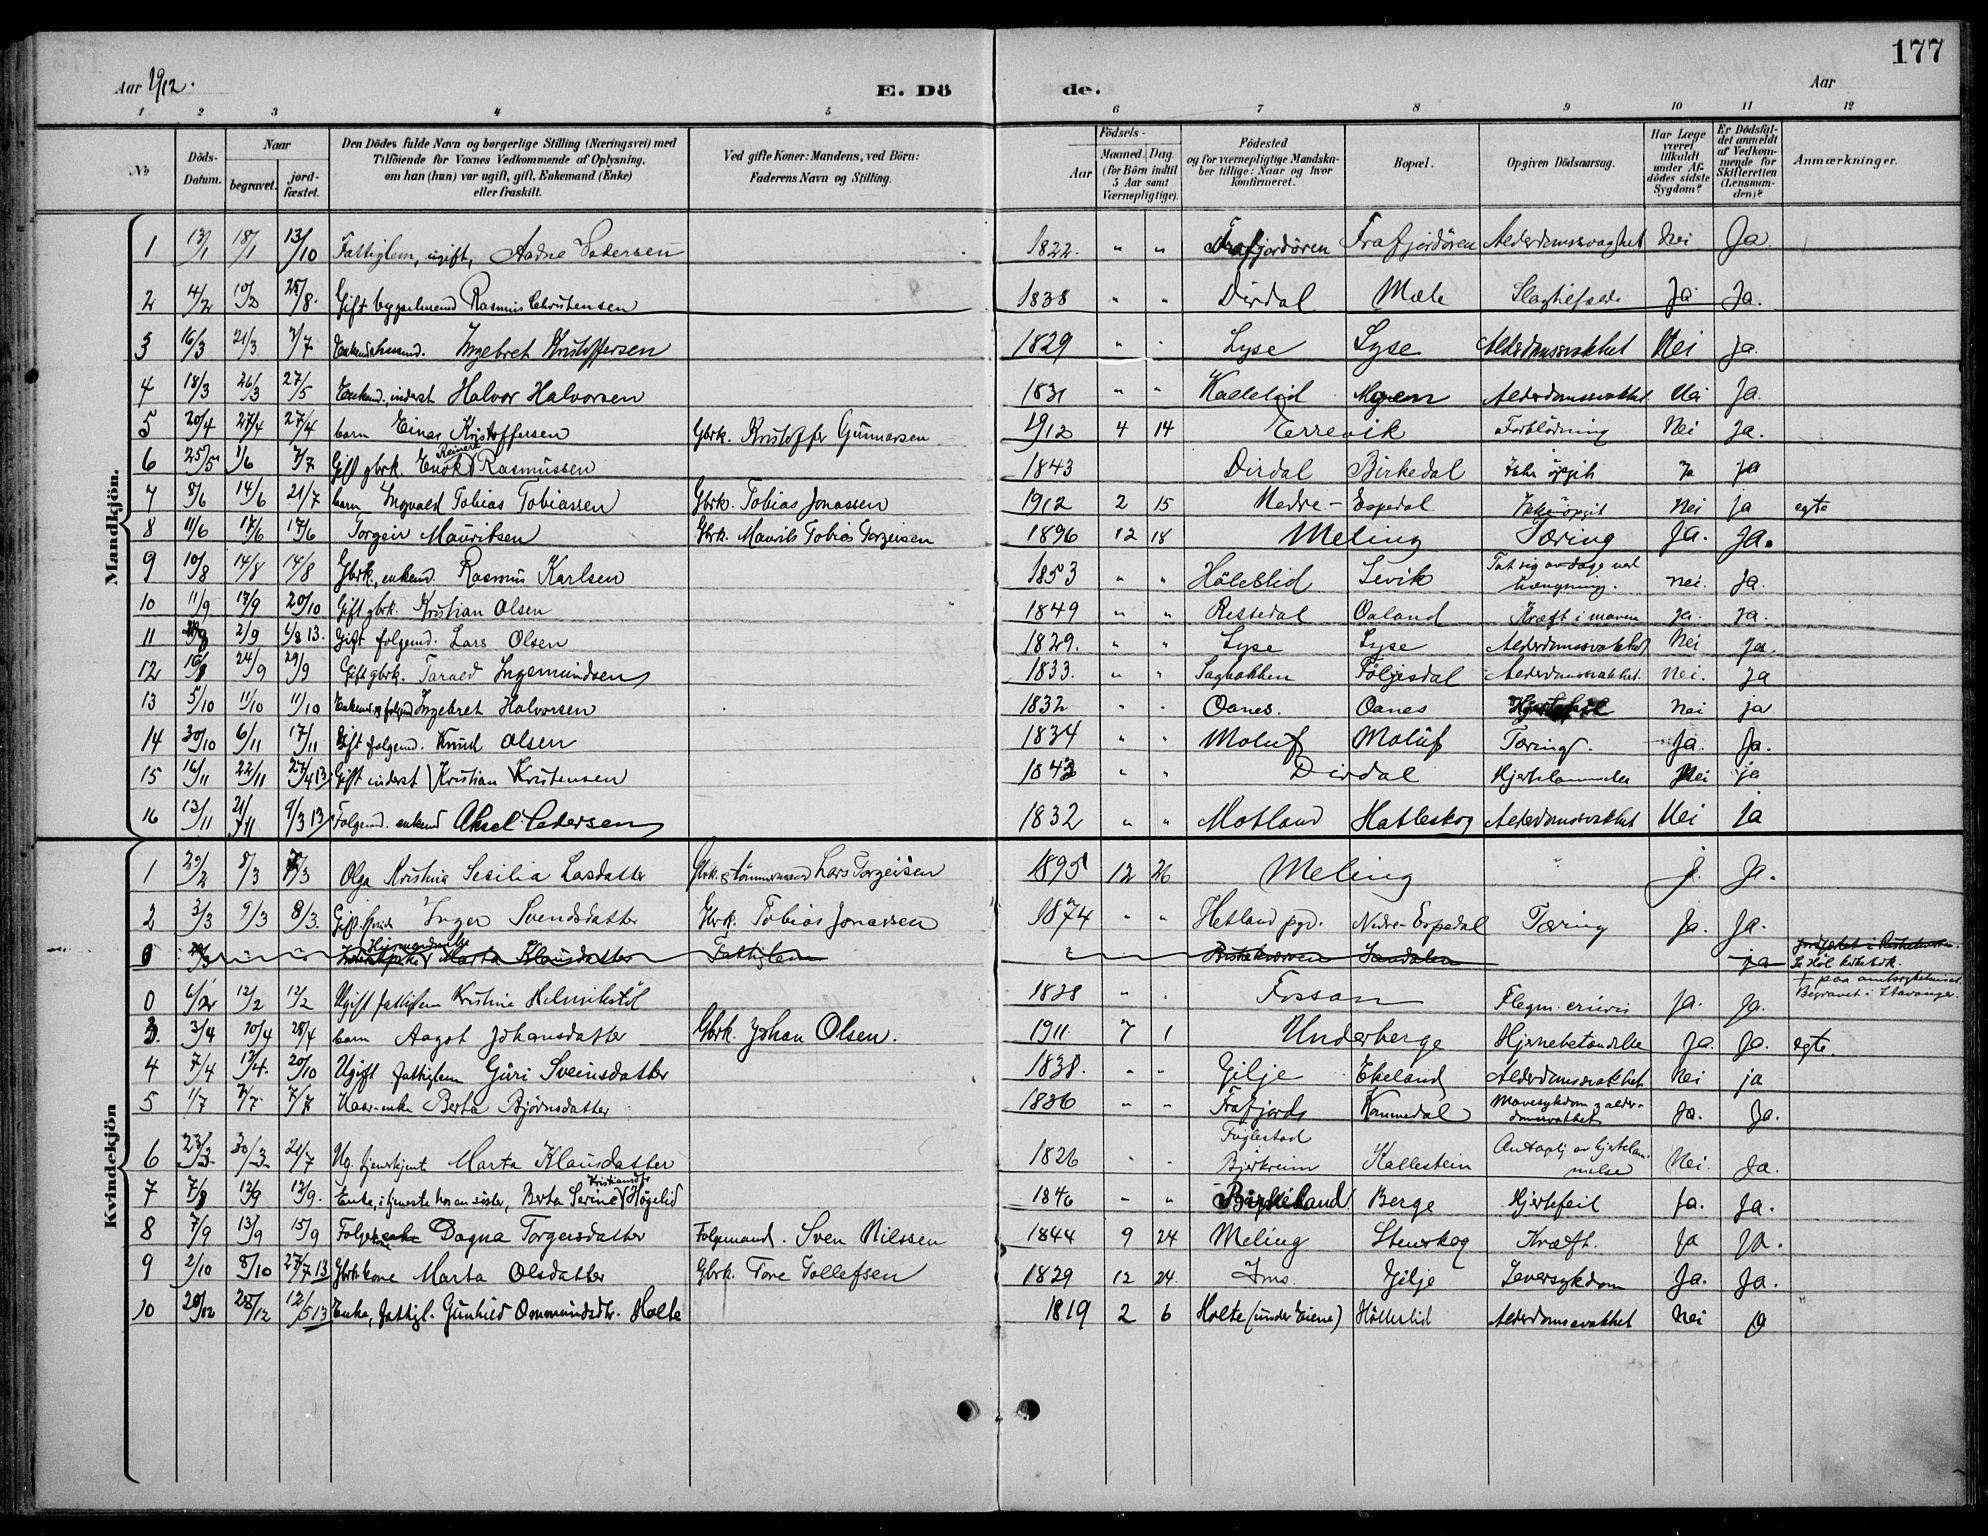 177
Aar 1912. E. Dö de. Aar
1 2 3 4 5 6 7 8 9 10 11 12
No
Döds-Datum.
Naar
begravet.
jord-fæstet.
Den Dödes fulde Navn og borgerlige Stilling (Næringsvei) med
Tilföiende for Voxnes Vedkommende af Oplysning,
om han (hun) var ugift, gift, Enkemand (Enke)
eller fraskilt.
Ved gifte Koner: Mandens, ved Börn:
Faderens Navn og Stilling.
Födsels-
Aar
Maaned. Dag.
(for Börn indtil
5 Aar samt
Værnepligtige).
Födested
og for værnepligtige Mandska-
ber tillige: Naar og hvor
konfirmeret.
Bopæl.
Opgiven Dödsaarsag.
Har Læge
været
tilkaldt
under Af-
dödes sidste
Sygdom?
Er Dödsfal-
det anmeldt
af Vedkom-
mende for
Skifteretten
(Lensman-
den)?
Anmærkninger.
Mandkjön.
1 13/1 18/1 13/10 Fattiglem, ugift, Aadne Pedersen 1822. " " Frafjordören Frafjordören Alderdomssvaghet Nei Ja.
2 4/2 10/2 25/8. Gift bygselmand Rasmus Christensen 1838 " " Dirdal Mæle Slagtilfælde Ja Ja.
3 16/3 21/3 7/7 Ingebret Kristoffersen 1829 " " Lyse Lyse Alderdomssvakhet Nei Ja.
4 18/3 26/3 27/5 Enkemd., inderst Halvor Halvorsen 1831 " " Kallelid Mgen Alderdomssvakhet Nei Ja.
5 20/4 27/4 27/4 barn Einar Kristoffersen Gbrk. Kristoffer Gunnarsen 1912 4 14 Eerrevik Forblödning Nei Ja.
6 25/5 1/6 7/7 Gift gbrk. Enok Reinert Rasmussen 1843 Dirdal Birkedal Ikke opgit Ja ja
7 8/6 14/6 21/7 barn Ingvald Tobias Tobiassen Gbrk. Tobias Jonassen 1912 2 15 Nedre- Espedal Ikke opgit Nei Ja egte
8 11/6 17/6 17/6 Torgeir Mauritsen Gbrk. Maurits Tobias Torgeirsen 1896 12 18 Meling Tæring Ja. Ja.
9 10/8 14/8 14/8 Gbrk., enkemd. Rasmus Karlsen 1853 " " Höleslid Levik Tat sig av dage ved hængning. nei. Ja.
10 11/9 17/9 20/10 Gift gbrk. Kristian Olsen 1849 " " Ressedal Oaland Kræft i maven Ja. Ja.
11 2/9 6/8 13. Gift folgemd. Lars Olsen 1829. " " Lyse Lyse Alderdomssvakhet Nei Ja.
12 24/9 29/9 Gift gbrk. Tarald Ingemundsen 1833. " " Sagbakken Följesdal Alderdomssvakhet. Nei. Ja
13 5/10 11/10 11/10 Ingebret Halvorsen 1832 " " Oanes. Oanes Hjertefeil Nei ja
14 30/10 6/11 17/11 Gift folgemd. Knud Olsen 1834 " " Moluf Moluf Tæring. Ja. Ja.
15 16/11 22/11 27/4 13 Gift inderst Kristian Kristensen 1843 " " Dirdal Hjertelammelse Nei ja
16 13/11 21/11 9/3 13 Folgemd. enkemd Aksel Pedersen 1832 " " Motland Hatleskog Alderdomssvakhet Nei ja
Kvindekjön
1 29/2 8/3 8/3 Olga Kristina Sesilia Larsdatter Gbrk. & tömmermand Lars Torgeirsen 1895 12 26 Meling " J. Ja.
2 3/3 9/3 8/3. Gift Inger Svendsdatter Gbrk. Tobias Jonassen 1874 " " Hetland pgd. Nedre-Espedal Tæring Ja. Ja.
0 Marta Klausdatter Fattiglem Sandalen ja
Se Höl kirkebok.
0 6/2 12/2 12/2 Ugift fattiglem Kristine Helmikstöl 1828 " " Fossan Flegm. cruris Ja. Ja. † paa amtssykehuset. Begravet i Stavanger.
3. 3/4 20/4 28/4 barn Aagot Johansdatter Gbrk. Johan Olsen. 1911. 7 1 Underberge Hjernebetændelse Ja. Ja. egte.
4 7/4 13/4. 20/10 Ugift fattiglem Guri Sveinsdatter 1838. " " Gilje Ekeland Alderdomssvakhet Nei ja
5 1/7 7/7 7/7 Kaar-enke Berta Björnsdatter 1836 " " Frafjord Kommedal Mavesykdom & alder-domssvakhet Ja. Ja.
6 23/3 30/3 21/7 Ug. tjenestejente Marta Klausdatter 1826 " " Fuglestad Bjerkreim Kallestein Antagelig av hjertelam-melse Nei. Ja.
7 7/8 12/9 12/9. Enke, i tjeneste hos en söster, Berta Serine Kristiansdtr Högelid 1846 " " Birkeland Berge Hjertefeil Ja. Ja.
8 7/9 13/9 15/9 Folgekone Dagna Torgersdatter Folgemand. Sven Nilssen 1844 9 24 Meling Stenskog Kræft. Ja Ja.
9 2/10 8/10 27/7 13 Gbrk. kone Marta Olsdatter Gbrk. Tore Tollefsen 1829 12 24. Ims. Gilje Leversykdom Ja. Ja.
10 20/12 28/12 12/5 13 Enke, fattigl. Gunhild Ommundsdtr. Holte 1819 2 6 Holte (under Eiene) Höllerlid Alderdomssvakhet Nei